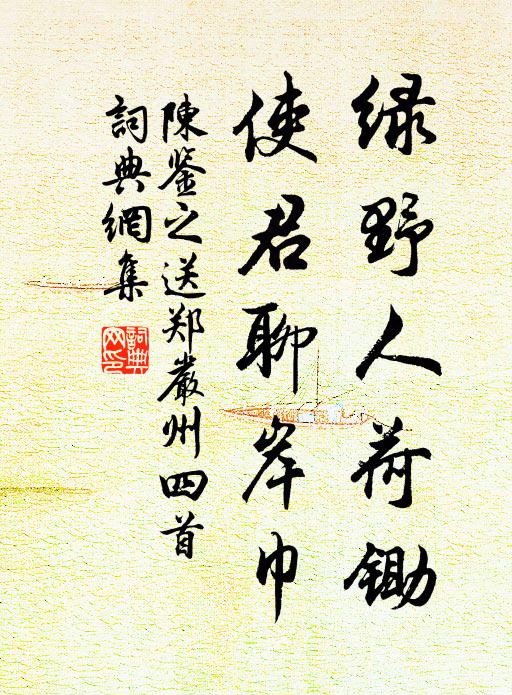 绿野人荷锄
使君聊岸巾
陳鉴之送郑嚴州四首
詞典網集
詞典
网印